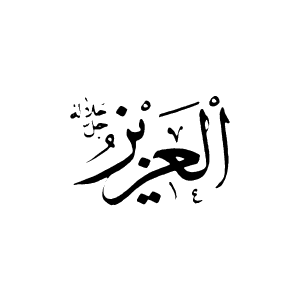 الْعَزِيْزُ
جل جلاله
١٤